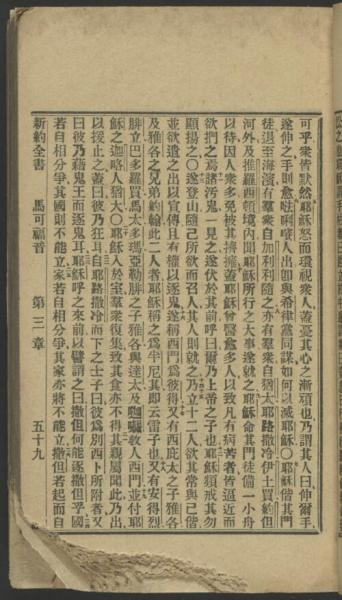 可乎衆皆默然耶穌怒而環視衆人蓋憂其心之漸頑也乃謂其人曰伸爾手
遂伸之手則愈㕸唎㘔人出卽與希律黨同謀如何以滅耶穌〇耶穌偕其門
徒退至海濱有羣衆自加利利隨之亦有羣衆自猶太耶路撒冷伊土買約但
河外及推羅西頓境內聞耶穌所行之大事遂就之耶穌命其門徒備一小舟
以待因人衆多免被其擠擁蓋耶穌曾醫愈多人以致凡有病苦者皆逼近而
欲捫之焉諸汚鬼一見之遂伏於其前呼曰爾乃上帝之子也耶穌須戒其勿
顯揚之〇遂登山隨己所欲而召人其人則就之乃立十二人欲其常與己偕
並欲遣之出以宣傳且有權以逐鬼遂稱西門爲彼得又有西庇太之子雅各
及雅各之兄弟約翰此二人者耶穌稱之爲半尼其卽云雷子也又有安得烈
腓立巴多羅買馬太多瑪亞勒腓之子雅各與達太及㘔人西門並付耶
穌之迦略人猶大〇耶穌入於室羣衆復集致其食亦不得其親屬聞此乃出
以援止之蓋曰彼乃狂耳自耶路撒冷而下之士子曰彼爲別西卜所附者又
曰彼乃藉鬼王而逐鬼耳耶穌呼之來前以譬謂之曰撒但何能逐撒但乎國
若自相分爭其國則不能立家若自相分爭其家亦將不能立撒但若起而自
新約全書 馬可福音 第三章 五十九